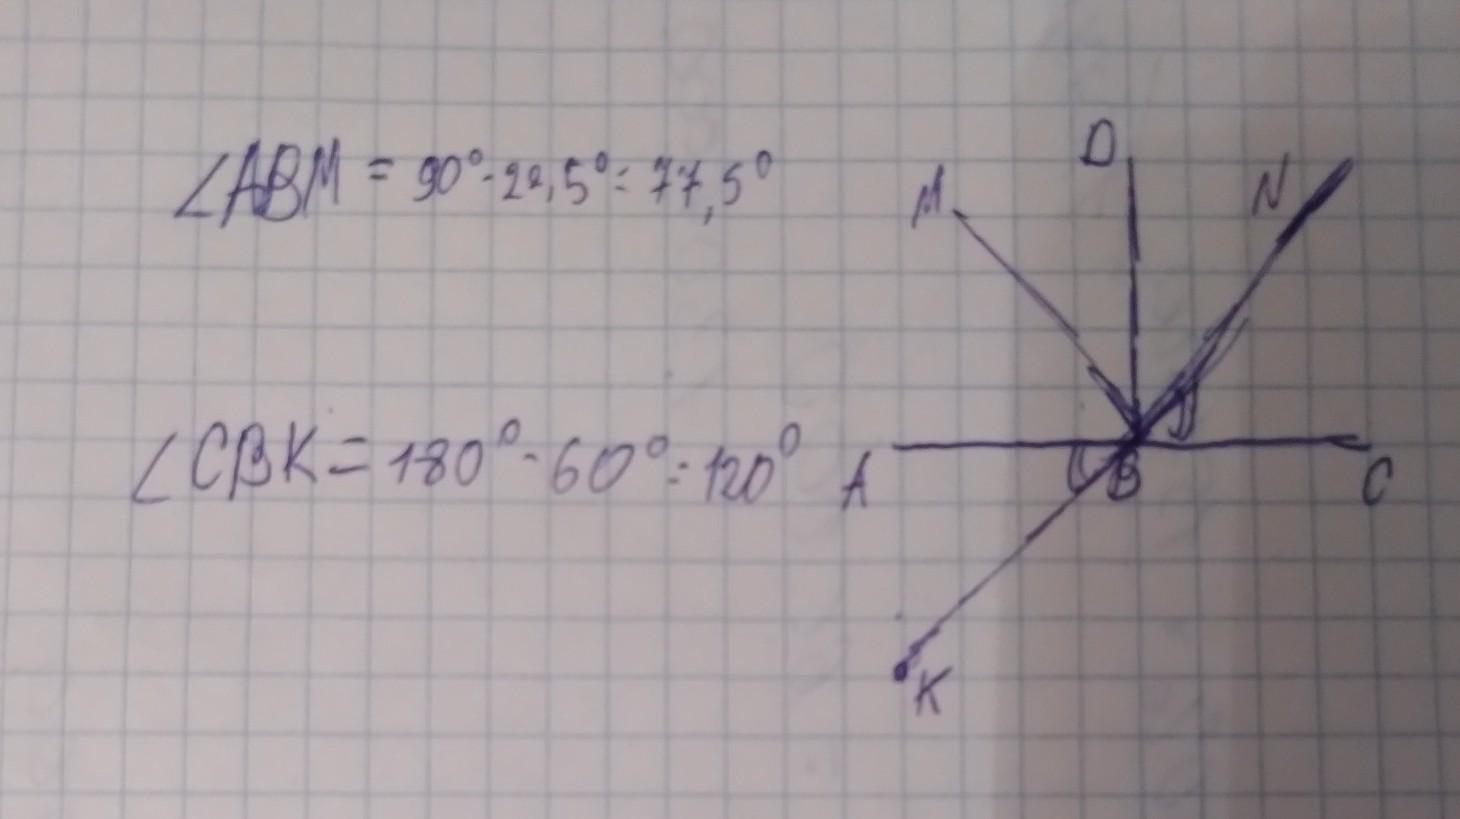 ∠ABM = 90°-22,5°=77,5°
∠CBK=180°-60°=120°
D
M
N
A
B
C
K